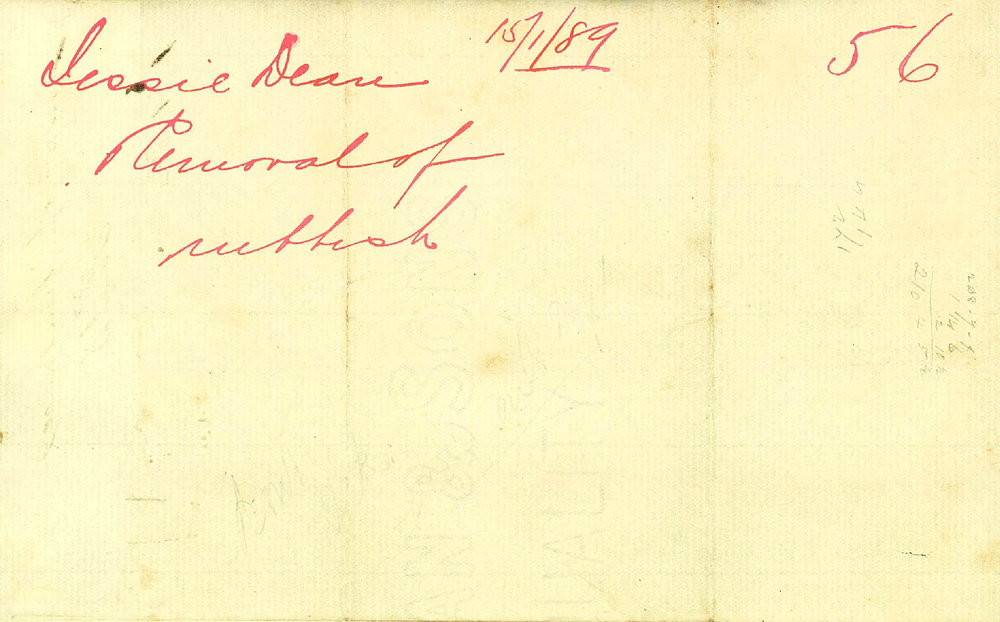 Jessie Dean
15/1/89
56
Removal of
rubbish